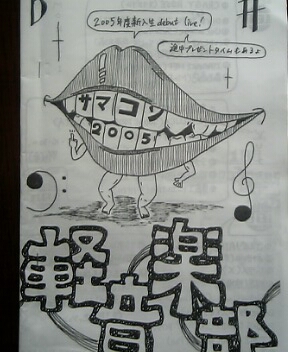 2005年度新入生debut live!
途中プレゼントタイムもあるよ
サマコン
2005
軽音楽部